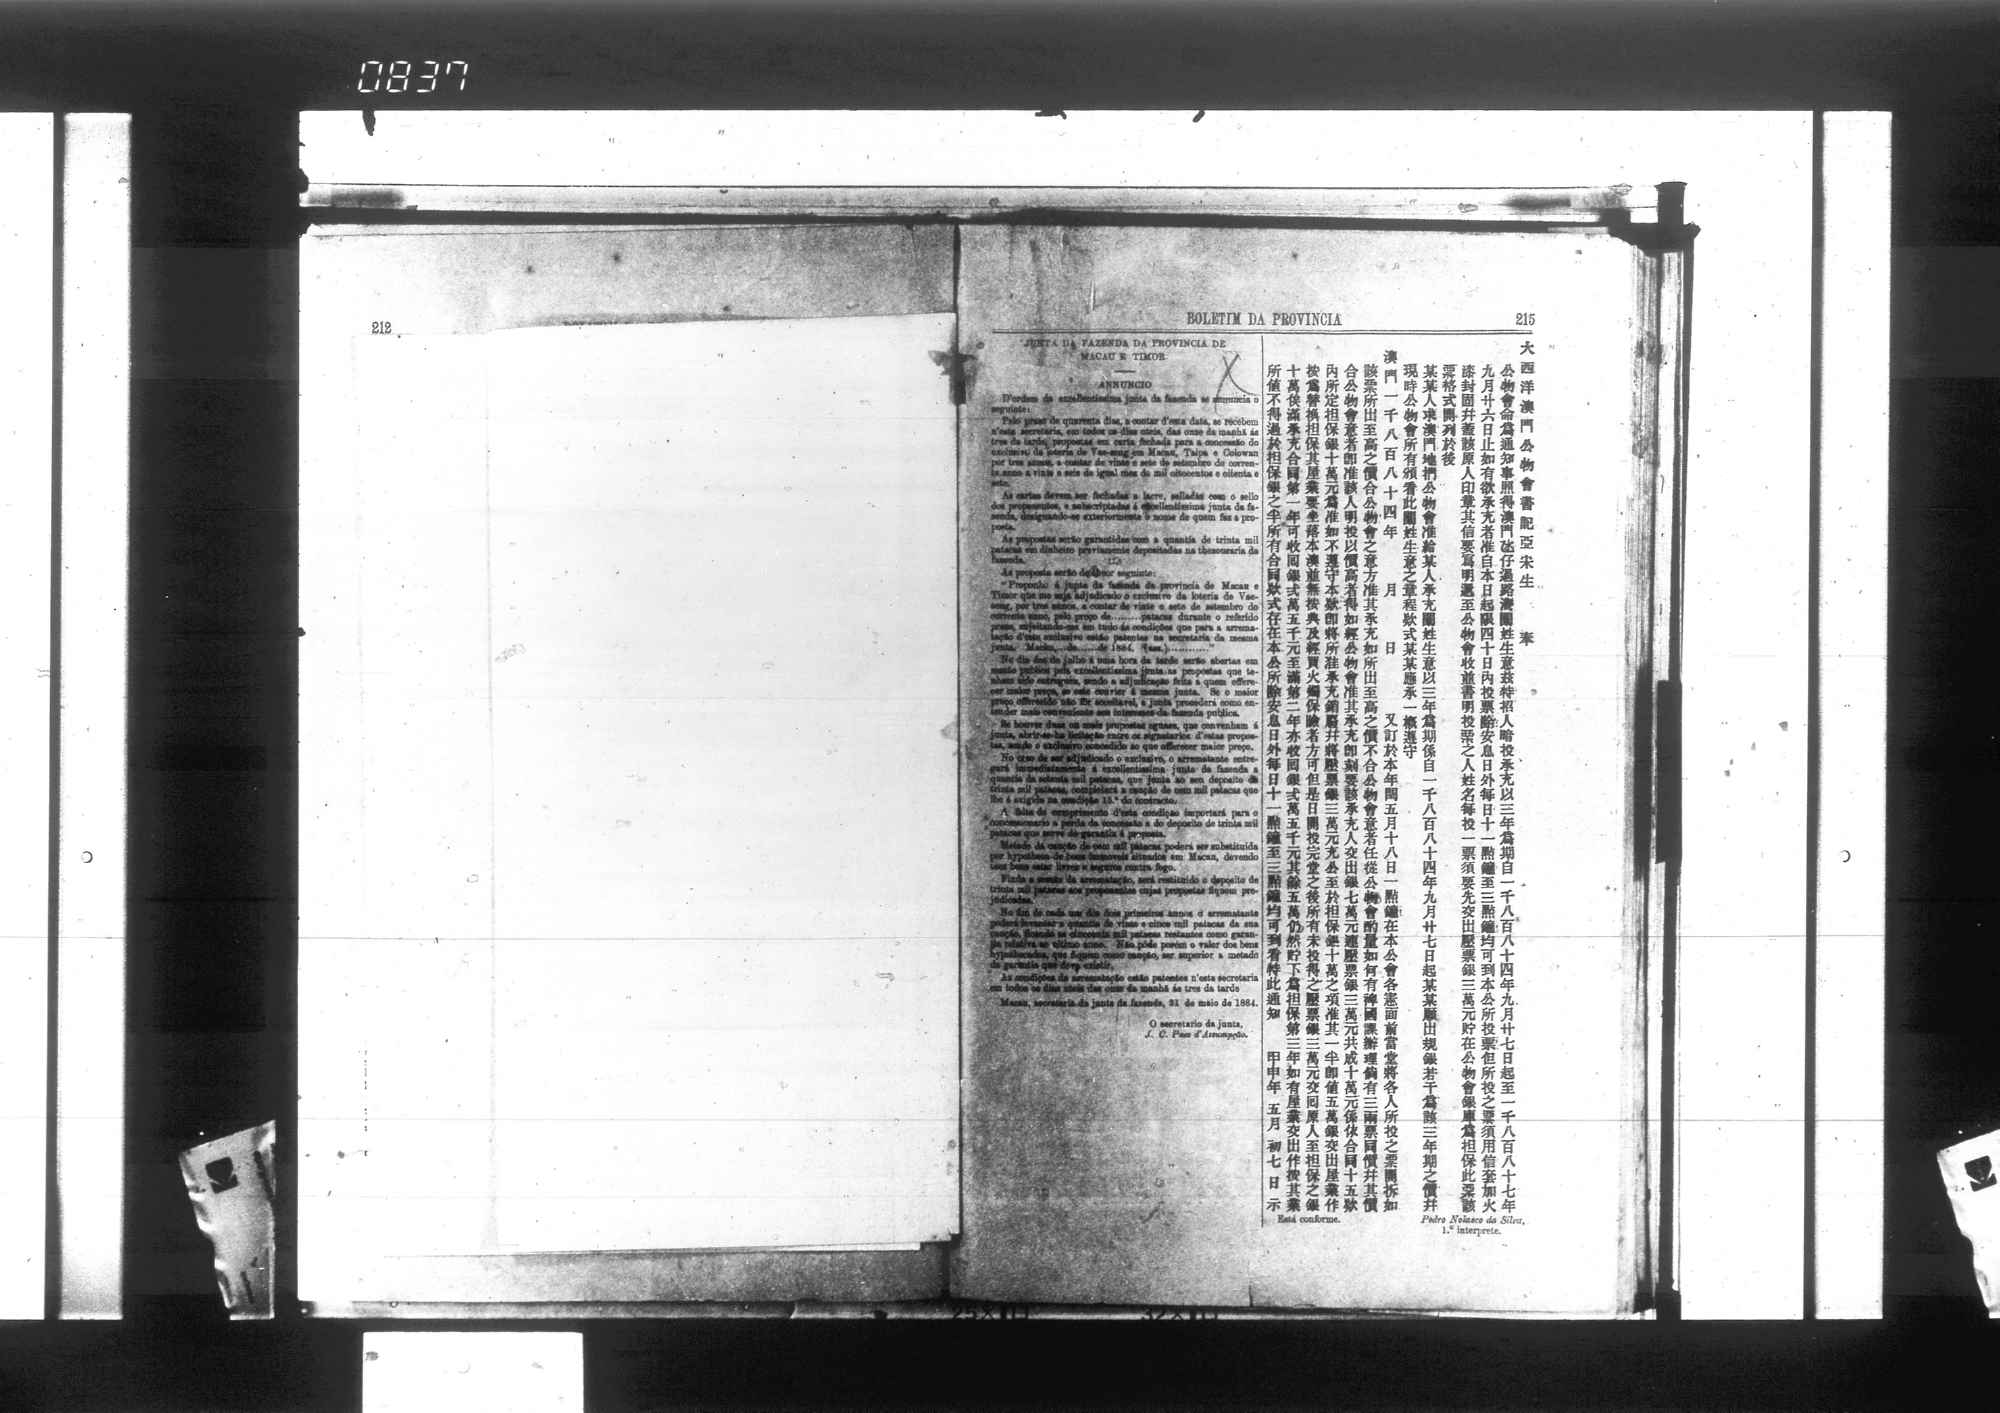 0837
212
BOLETIM DA PROVINCIA
215
JUNTA DA FAZENDA DA PROVINCIA DE
MACAU E TIMOR
ANNUNCIO
D'ordem da excellentissima junta da fazenda se annuncia o
seguinte:
Pelo praso de quarenta dias, a contar d'esta data, se recebem
n'esta secretaria, em todos os dias uteis, das onze da manhã ás
tres da tarde, propostas em carta fechada para a concessão do
exclusivo da loteria de Vae-seng em Macau, Taipa e Colowan
por tres annos, a contar de vinte e sete de setembro do corren-
te anno a vinte e seis de igual mez de mil oitocentos e oitenta e
sete.
As cartas devem ser fechadas a lacre, selladas com o sello
dos proponentes, e subscriptadas á excellentissima junta da fa-
zenda, designando-se exteriormente o nome de quem faz a pro-
posta.
As propostas serão garantidas com a quantia de trinta mil
patacas em dinheiro previamente depositadas na thesouraria da
fazenda.
As proposta serão do theor seguinte:
"Proponho á junta da fazenda da provincia de Macau e
Timor que me seja adjudicado o exclusivo da loteria de Vae-
seng, por tres annos, a contar de vinte e sete de setembro do
corrente anno, pelo preço de.........patacas durante o referido
praso, sujeitando-me em tudo ás condições que para a arrema-
tação d'este exclusivo estão patentes na secretaria da mesma
junta. Macau,...de......de 1884. (ass.)............"
No dia dez de julho á uma hora da tarde serão abertas em
sessão publica pela excellentissima junta as propostas que te-
nham sido entregues, sendo a adjudicação feita a quem offere-
cer maior preço, se este convier á mesma junta. Se o maior
preço offerecido não fôr acceitavel, a junta procederá como en-
tender mais conveniente aos interesses da fazenda publica.
Se houver duas ou mais propostas eguaes, que convenham á
junta, abrir-se-ha licitação entre os signatarios d'estas propos-
tas, sendo o exclusivo concedido ao que offerecer maior preço.
No caso de ser adjudicado o exclusivo, o arrematante entre-
gará immediatamente á excellentissima junta da fazenda a
quantia de setenta mil patacas, que junta ao seu deposito de
trinta mil patacas, completará a caução de cem mil patacas que
lhe é exigida na condição 15.ª do contracto.
A falta de cumprimento d'esta condição importará para o
concessionario a perda da concessão e do deposito de trinta mil
patacas que serve de garantia á proposta.
Metade da caução de cem mil patacas poderá ser substituida
por hypotheca de bens immoveis situados em Macau, devendo
esses bens estar livres e seguros contra fogo.
Finda a sessão da arrematação, será restituido o deposito de
trinta mil patacas aos proponentes cujas propostas fiquem pre-
judicadas.
No fim de cada um dos dois primeiros annos o arrematante
poderá levantar a quantia de vinte e cinco mil patacas da sua
caução, ficando as cincoenta mil patacas restantes como garan-
tia relativa ao ultimo anno. Não póde porém o valor dos bens
hypothecados, que fiquem como caução, ser superior a metade
da garantia que deve existir.
As condições da arrematação estão patentes n'esta secretaria
em todos os dias uteis das onze da manhã ás tres da tarde
Macau, secretaria da junta da fazenda, 31 de maio de 1884.
O secretario da junta,
J. C. Paes d'Assumpção.
大西洋澳門公物會書記亞宋生 奉
公物會命為通知事照得澳門氹仔過路灣闈姓生意茲特招人暗投承充以三年為期自一千八百八十四年九月廿七日起至一千八百八十七年
九月廿六日止如有欲承充者准自本日起限四十日內投票除安息日外每日十一點鐘至三點鐘均可到本公所投票但所投之票須用信套加火
漆封固并蓋該原人印章其信要寫明遞至公物會收並書明投票之人姓名每投一票須要先交出壓票銀三萬元貯在公物會銀庫為担保此票該
票格式開列於後
某某人求澳門地捫公物會准給某人承充闈姓生意以三年為期係自一千八百八十四年九月廿七日起某某願出規銀若干為該三年期之價并
現時公物會所有頒看此闈姓生意之章程欵式某某應承一概遵守
澳門一千八百八十四年 月 日 又訂於本年閏五月十八日一點鐘在本公會各憲面前當堂將各人所投之票開拆如
該票所出至高之價合公物會之意方准其承充如所出至高之價不合公物會意者任從公物會酌量如何有裨國課辦理倘有三兩票同價并其價
合公物會意者卽准該人明投以價高者得如經公物會准其承充卽刻要該承充人交出銀七萬元連壓票銀三萬元共成十萬元係依合同十五欵
內所定担保銀十萬元為准如不遵守本欵卽將所准承充銷廢并將壓票銀三萬元充公至於担保銀十萬之項准其一半卽值五萬銀交出屋業作
按為替換担保其屋業要坐落本澳並無按典及經買火燭保險者方可但是日開投完堂之後所有未投得之壓票銀三萬元交囘原人至担保之銀
十萬俟滿承充合同第一年可收囘銀式萬五千元至滿第二年亦收囘銀式萬五千元其餘五萬仍然貯下為担保第三年如有屋業交出作按其業
所值不得過於担保銀之半所有合同欵式存在本公所除安息日外每日十一點鐘至三點鐘均可到看特此通知 甲申年五月初七日示
Está conforme.
Pedro Nolasco da Silva,
1.º interprete.